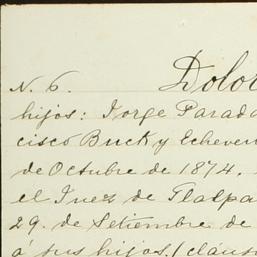 N. 6. Dolor
hijos: Jorge Parada
cisco Buck y Echever
de Octubre de 1874.
el Juez de Tlalpa
29. de Setiembre de
á sus hijos, (cláus